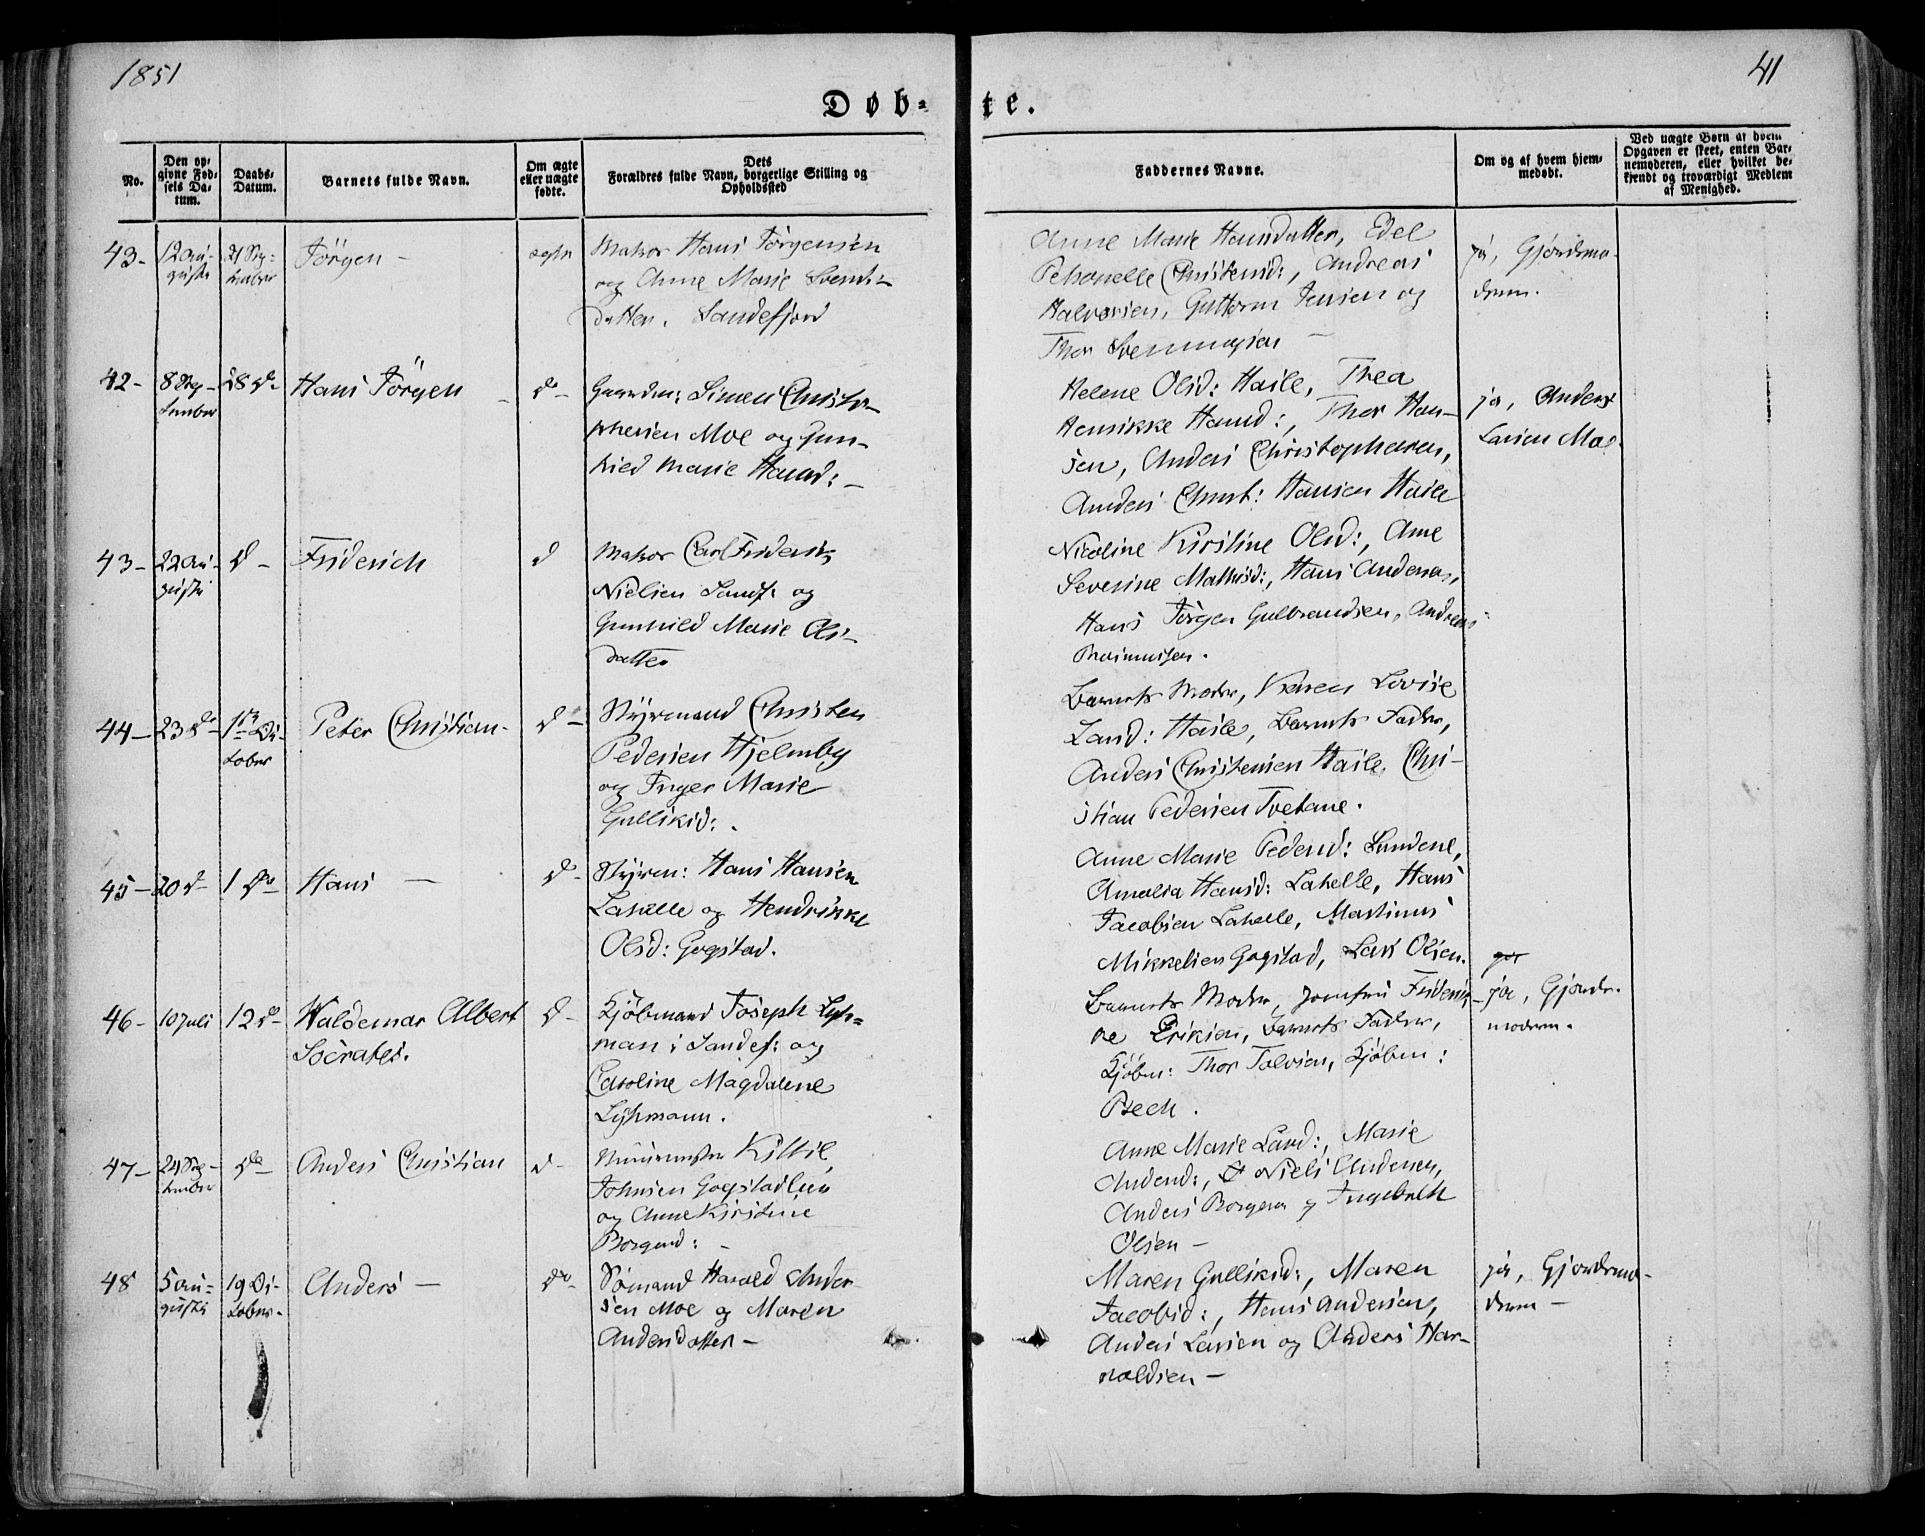 1851
41
Døb-
te.
No.
Den op-
givne Fød-
sels Da-
tum.
Daabs-
Datum.
Barnets fulde Navn.
Om ægte
eller uægte
fødte.
Dets
Forældres fulde Navn, borgerlige Stilling og
Opholdssted
Faddernes Navne.
Om og af hvem hjem-
medøbt.
Ved uægte Børn af hvem
Opgaven er skeet, enten Bar-
nemoderen, eller hvilket be-
kjendt og troværdigt Medlem
af Menighed.
43-
12 Au-
gusti
21 Sep-
tember
Jörgen -
ægte
Matros Hans Jörgensen
og Anne Marie Svends-
datter. Sandefjord
Anne Marie Hansdatter, Edel
Petronelle Christensd:, Andreas
Halvorsen, Guttorm Jensen og
Thor
ja, Gjordemo-
dren.
42-
8 Sep-
tember
28 do
Hans Jörgen
do -
Gaardm: Simen Christo-
phersen Moe og Gun-
hild Marie Hansd: -
Helene Olsd: Hasle, Thea
Henrikke Hansd:, Thor Han-
sen, Anders Christophersen,
Anders Christ: Hansen Hasle
ja, Anders
Larsen Moe.
43-
22 Au-
gusti
d -
Friderich
d
Matros Carl Friderik
Nielsen Sandf: og
Gunhild Marie Ols-
datter
Nicoline Kirstine Olsd:, Anne
Severine Mathisd:, Hans Andersen,
Hans Jörgen Gulbrandsen, Andreas
Rasmussen.
44-
23 do
1ste Oc-
tober
Peter Christian-
d -
Styrmand Christen
Pedersen Hjelmby
og Inger Marie
Gulliksd: .
Barnets Moder, Karen Lovise
Larsd: Hasle, Barnets Fader,
Anders Christensen Hasle, Chri-
stian Pedersen Tvetane.
45-
20 d-
1 do
Hans -
do-
Styrm: Hans Hansen
Lahelle og Hendrikke
Olsd: Gogstad.
Anne Marie Pedersd: Lundene,
Amalia Hansd: Lahelle, Hans
Jacobsen Lahelle, Martinus
Mikkelsen Gogstad, Lars Olsen.
46-
10 Juli
12 do
Waldemar Albert
Socrates.
d-
Kjöbmand Joseph Lyh-
man i Sandef: og
Caroline Magdalene
Lyhmann.
Barnets Moder, Jomfru Frideri-
ke Eriksen, Barnets Fader,
Kjöbm: Thor Tolvsen, Kjöbm:
Bech.
ja, Gjorde-
moderen.
47-
24 Sep-
tember
do
Anders Christian
d-
Muurmester Kittil
Johnsen Gogstad
og Anne Kirstine
Borgersd: -
Anne Marie Larsd:, Marie
Andersd:, Niels Andersen,
Anders Borgersen og Ingebreth
Olsen -
48
5 Au-
gusti
19 Oc-
tober.
Anders -
do-
Sömand Harald Ander
sen Moe og Maren
Andersdatter -
Maren Gulliksd:, Maren
Jacobsd:, Hans Andersen,
Anders Larsen og Anders Har-
raldsen -
ja, Gjordemo-
dren -